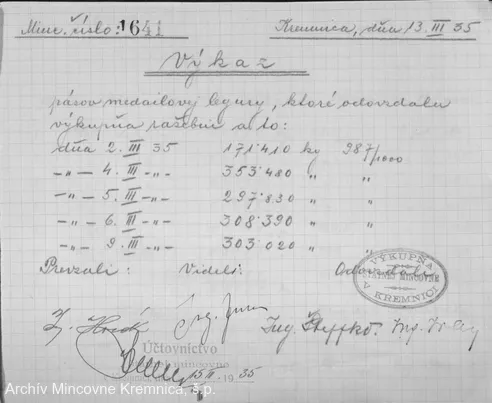 Minc. číslo: 1641 Kremnica, dňa 13. III 35
Výkaz
pásov medailovej legury, ktoré odovzdala
výkupňa ražebni a to:
dňa 2. III 35 171·410 kg 987/1000
-"- 4. III -"- 353·480 " "
-"- 5. III -"- 297·830 " "
-"- 6. III -"- 308·390 " "
-"- 9. III -"- 303·020 " "
Prevzali: Videli: Odovzdali:
VÝKUPŇA
ŠTÁTNEJ MINCOVNE
V KREMNICI
Ing.
Účtovníctvo
35
Archív Mincovne Kremnica, š.p.